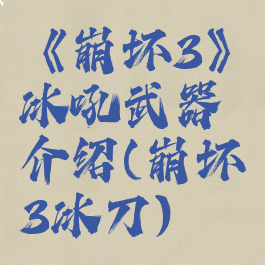 《崩坏3》
冰吼武器
介绍(崩坏
3冰刀)